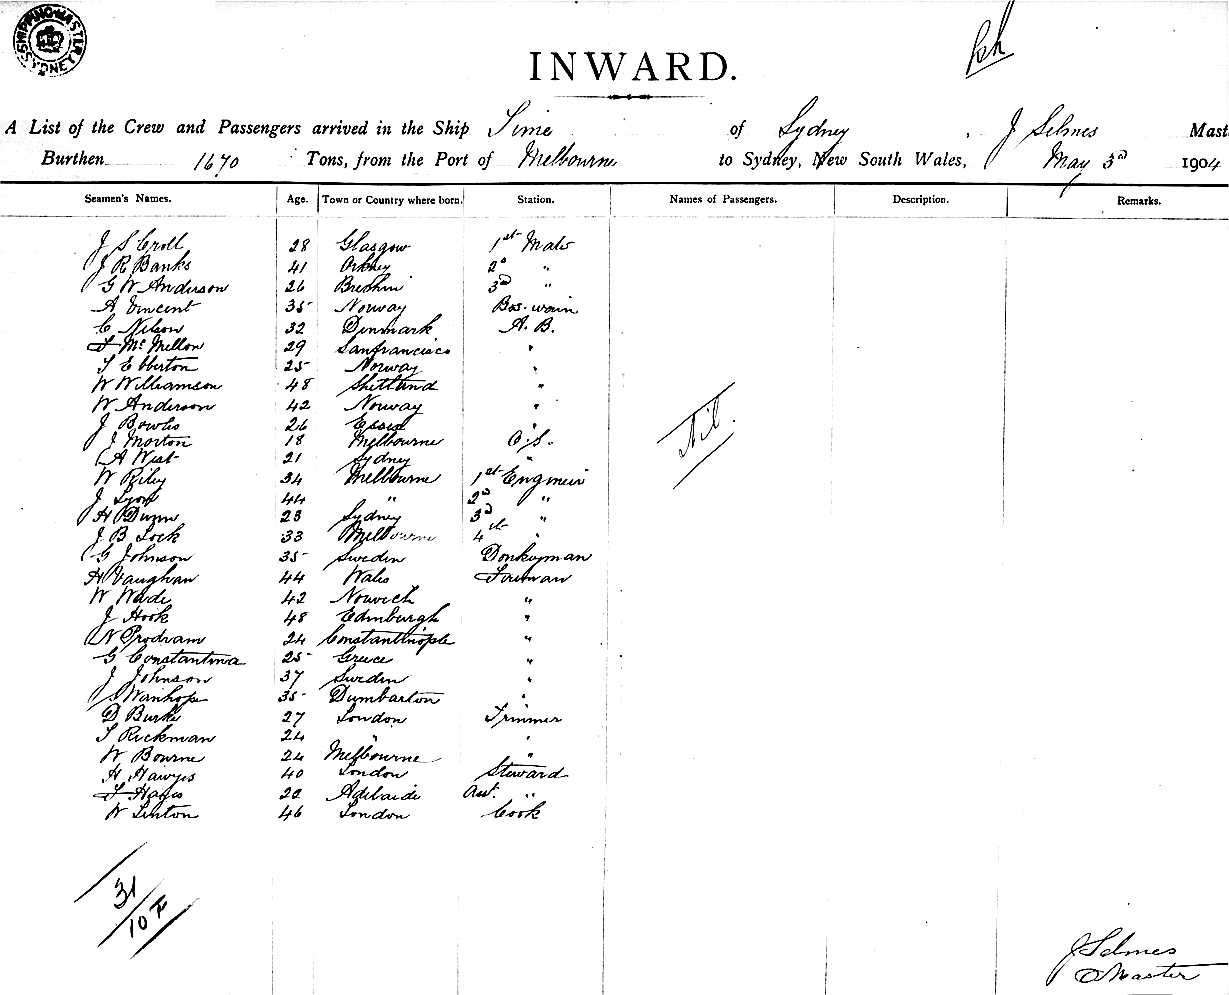 SHIPPING MASTER SYDNEY
INWARD.
A List of the Crew and Passengers arrived in the Ship Time of Sydney, J Selmes Mast
Burthen 1670 Tons, from the Port of Melbourne to Sydney, New South Wales, May 3rd 1904
Seamen's Names. Age. Town or Country where born. Station. Names of Passengers. Description. Remarks.
J S Croll 28 Glasgow 1st Mate
J R Banks 41 Orkney 2d "
G W Anderson 26 Brechin 3d "
A Vincent 35 Norway Bos-wain
C Nilson 32 Denmark A.B.
McMellon 29 Sanfrancisco "
Ebberton 25 Norway "
W Williamson 48 Shetland "
W Anderson 42 Norway "
J Bowles 26 Essex
J Morton 18 Melbourne O.S.
A West 21 Sydney "
W Riley 34 Melbourne 1st Engineer
J Lyon 44 " 2d "
H Dunn 23 Sydney 3d "
J B Lock 33 Melbourne 4th "
G Johnson 35 Sweden Donkeyman
H Vaughan 44 Wales Fireman
W Wade 42 Norwich "
J Hook 48 Edinburgh "
N Prodram 24 Constantinople "
G Constantina 25 Greece "
J Johnson 37 Sweden "
Wanhope 35 Dumbarton "
D Burke 27 London Trimmer
Rickman 24 " "
W Bourne 24 Melbourne "
H Hawyes 40 London Steward
Hayes Adelaide Asst. "
W Linton 46 London Cook
Nil.
31
10 F
J Selmes
Master